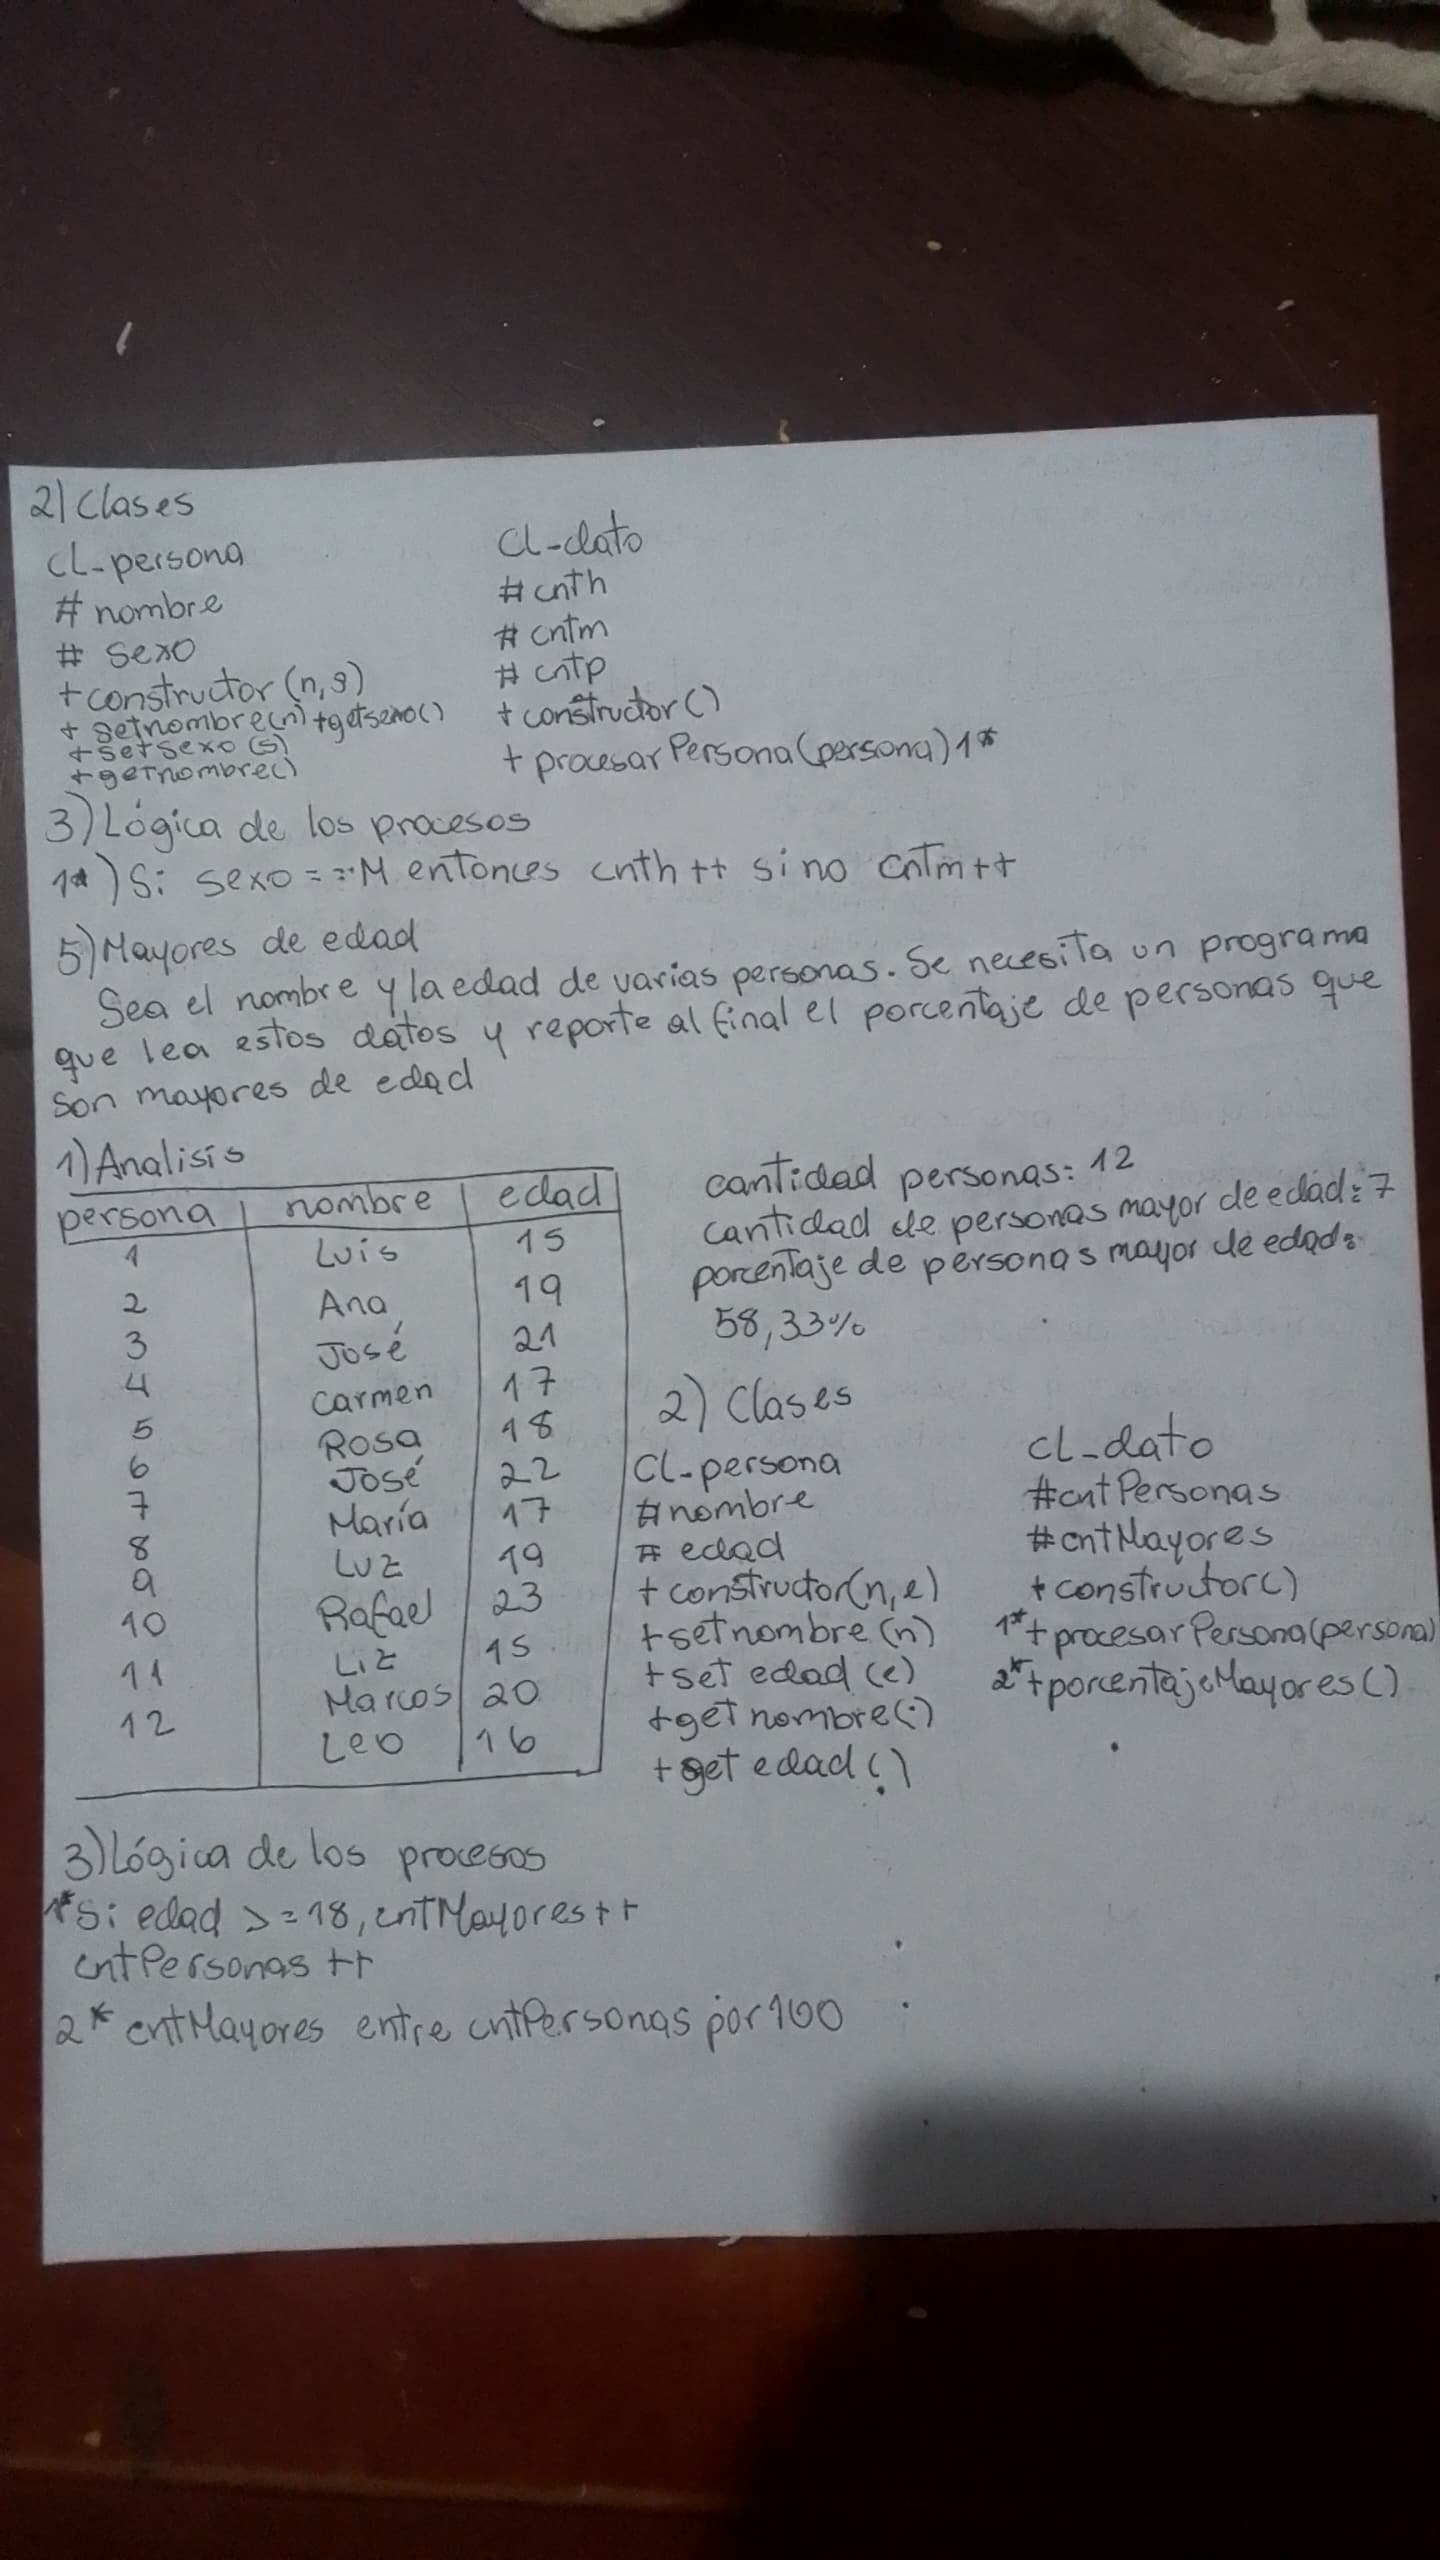 2) Clases
CL_persona
# nombre
# sexo
+ constructor (n,s)
+ setnombre(n) +getsexo()
+ setsexo (s)
+ getnombre()
CL_dato
# cnth
# cntm
# cntp
+ constructor()
+ procesarPersona(persona) 1*
3) Lógica de los procesos
1*) Si sexo == M entonces cnth++ si no cntm++
5) Mayores de edad
Sea el nombre y la edad de varias personas. Se necesita un programa
que lea estos datos y reporte al final el porcentaje de personas que
son mayores de edad
1) Analisis
persona | nombre | edad
1 Luis 15
2 Ana 19
3 José 21
4 Carmen 17
5 Rosa 18
6 José 22
7 María 17
8 Luz 19
9 Rafael 23
10 Liz 15
11 Marcos 20
12 Leo 16
cantidad personas: 12
cantidad de personas mayor de edad: 7
porcentaje de personas mayor de edad:
58,33%
2) Clases
CL_persona
#nombre
# edad
+ constructor(n,e)
+ setnombre (n)
+ set edad (e)
+ get nombre()
+ get edad ()
CL_dato
#cntPersonas
#cntMayores
+ constructor()
1*+ procesarPersona(persona)
2*+ porcentajeMayores()
3) Lógica de los procesos
1* Si edad >= 18, cntMayores++
cntPersonas ++
2* cntMayores entre cntPersonas por 100